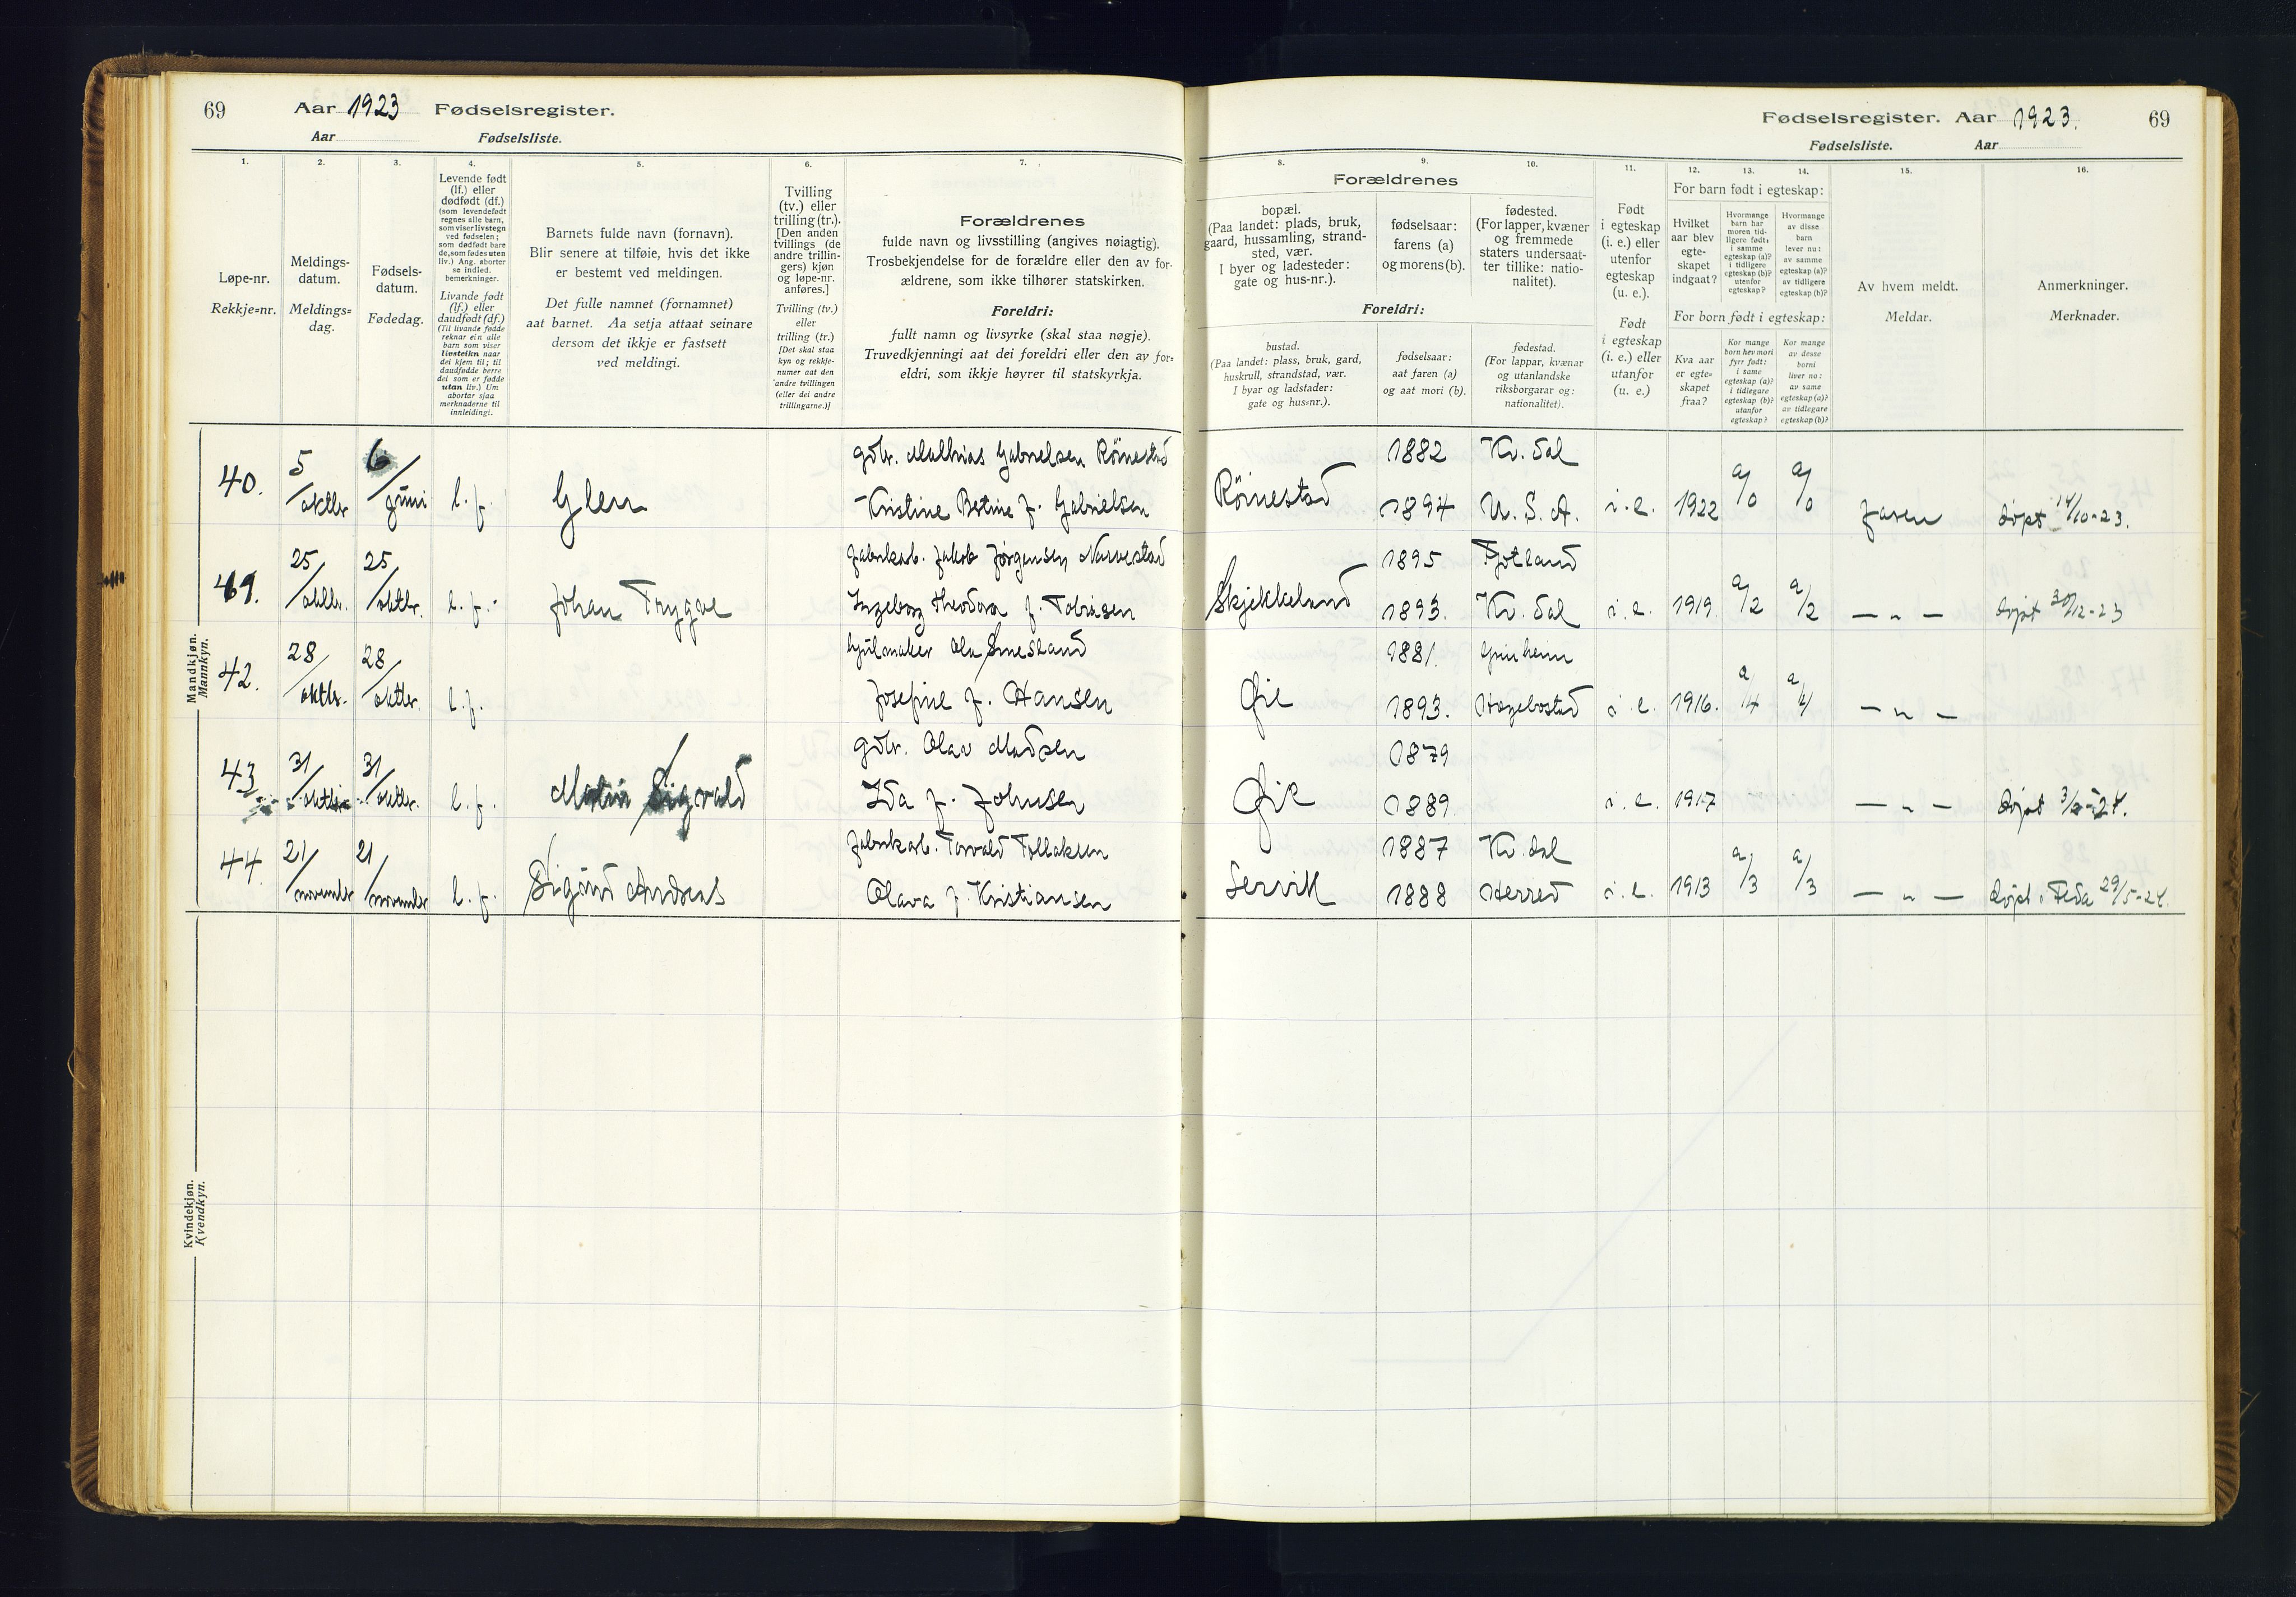 69 Aar 1923 Fødselsregister.
Aar Fødselsliste.
Fødselsregister. Aar 1923. 69
Fødselsliste. Aar
1. 2. 3. 4. 5. 6. 7.
Løpe-nr.
Rekkje=nr.
Meldings-
datum.
Meldings=
dag.
Fødsels-
datum.
Fødedag.
Levende født
(lf.) eller
dødfødt (df.)
(som levendefødt
regnes alle barn,
som viser livstegn
ved fødselen;
som dødfødt bare
de, som fødes uten
liv.) Ang. aborter
se indled.
bemerkninger.
Livande født
(lf.) eller
daudfødt (df.)
(Til livande fødde
reknar ein alle
barn som viser
livsteikn naar
dei kjem til; til
daudfødde berre
dei som er fødde
utan liv.) Um
abortar sjaa
merknaderne til
innleidingi.
Barnets fulde navn (fornavn).
Blir senere at tilføie, hvis det ikke
er bestemt ved meldingen.
Det fulle namnet (fornamnet)
aat barnet. Aa setja attaat seinare
dersom det ikkje er fastsett
ved meldingi.
Tvilling
(tv.) eller
trilling (tr.).
[Den anden
tvillings (de
andre trillin-
gers) kjøn
og løpe-nr.
anføres.]
Tvilling (tv.)
eller
trilling (tr.)
[Det skal staa
kyn og rekkje-
numer aat den
andre tvillingen
(eller dei andre
trillingarne.)]
Forældrenes
fulde navn og livsstilling (angives nøiagtig).
Trosbekjendelse for de forældre eller den av for-
ældrene, som ikke tilhører statskirken.
Foreldri:
fullt namn og livsyrke (skal staa nøgje).
Truvedkjenningi aat dei foreldri eller den av for=
eldri, som ikkje høyrer til statskyrkja.
8. 9. 10. 11. 12. 13. 14. 15. 16.
Forældrenes
bopæl.
(Paa landet: plads, bruk,
gaard, hussamling, strand-
sted, vær.
I byer og ladesteder:
gate og hus-nr.).
fødselsaar:
farens (a)
og morens (b).
fødested.
(For lapper, kvæner
og fremmede
staters undersaat-
ter tillike: natio-
nalitet).
Foreldri:
bustad.
(Paa landet: plass, bruk, gard,
huskrull, strandstad, vær.
I byar og ladstader:
gate og hus=nr.).
fødselsaar:
aat faren (a)
og aat mori (b).
fødestad.
(For lappar, kvænar
og utanlandske
riksborgarar og:
nationalitet).
Født
i egteskap
(i. e.) eller
utenfor
egteskap
(u. e.).
Født
i egteskap
(i. e.) eller
utanfor
(u. e.)
For barn født i egteskap:
Hvilket
aar blev
egte-
skapet
indgaat?
Hvormange
barn har
moren tid-
ligere født:
i samme
egteskap (a)?
i tidligere
egteskap (b)?
utenfor
egteskap?
Hvormange
av disse
barn
lever nu:
av samme
egteskap (a)?
av tidligere
egteskap (b)?
For born født i egteskap:
Kva aar
er egte=
skapet
fraa?
Kor mange
born hev mori
fyrr født:
i same
egteskap (a)?
i tidlegare
egteskap (b)?
utanfor
egteskap?
Kor mange
av desse
borni
liver no:
av same
egteskap (a)?
av tidlegare
egteskap (b)?
Av hvem meldt.
Meldar.
Anmerkninger.
Merknader.
Mandkjøn.
Mannkyn.
40. 5/oktbr 6/juni l. f. Glen
gdbr. Mathias Gabrielsen Röinestad 1882 Kv. dal
Kristine Bertine f. Gabrielsen Röinestad 1894 U. S. A. i. e. 1922 a/0 a/0 faren døpt 14/10-23.
41. 25/oktbr. 25/oktbr. l. f. Johan Trygve
fabrikarb. Jakob Jørgensen Narvestad 1895 Fjotland
Ingeborg Theodora f. Tobiasen Skjekkeland 1893. Kv. dal i. e. 1919. a/2 a/2 — „ — døpt 30/12-23
42. 28/oktbr. 28/oktbr. l. f.
hjulmaker Ola Smesland 1881. Grinheim
Josefine f. Hansen Øie 1893. Hægebostad i. e. 1916. a/4 a/4 — „ —
43. 31/oktbr 31/oktbr. l. f. Sigvald
gdbr. Olav Madsen 1879
Ida f. Johnsen Øie 1889. i. e. 1917 — „ — døpt 3/2-24.
44. 21/november 21/november l. f. Sigurd Andreas
fabrikarb. Torvald Tollaksen 1887 Kv. dal
Olava f. Kristiansen Lervik 1888 Herred i. e. 1913 a/3 a/3 — „ — døpt i Feda 29/5-24.
Kvindekjøn.
Kvendkyn.